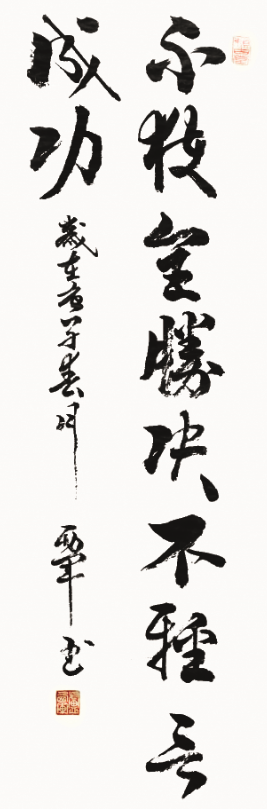 不獲全勝决不輕言
成功
歲在庚子春月 書